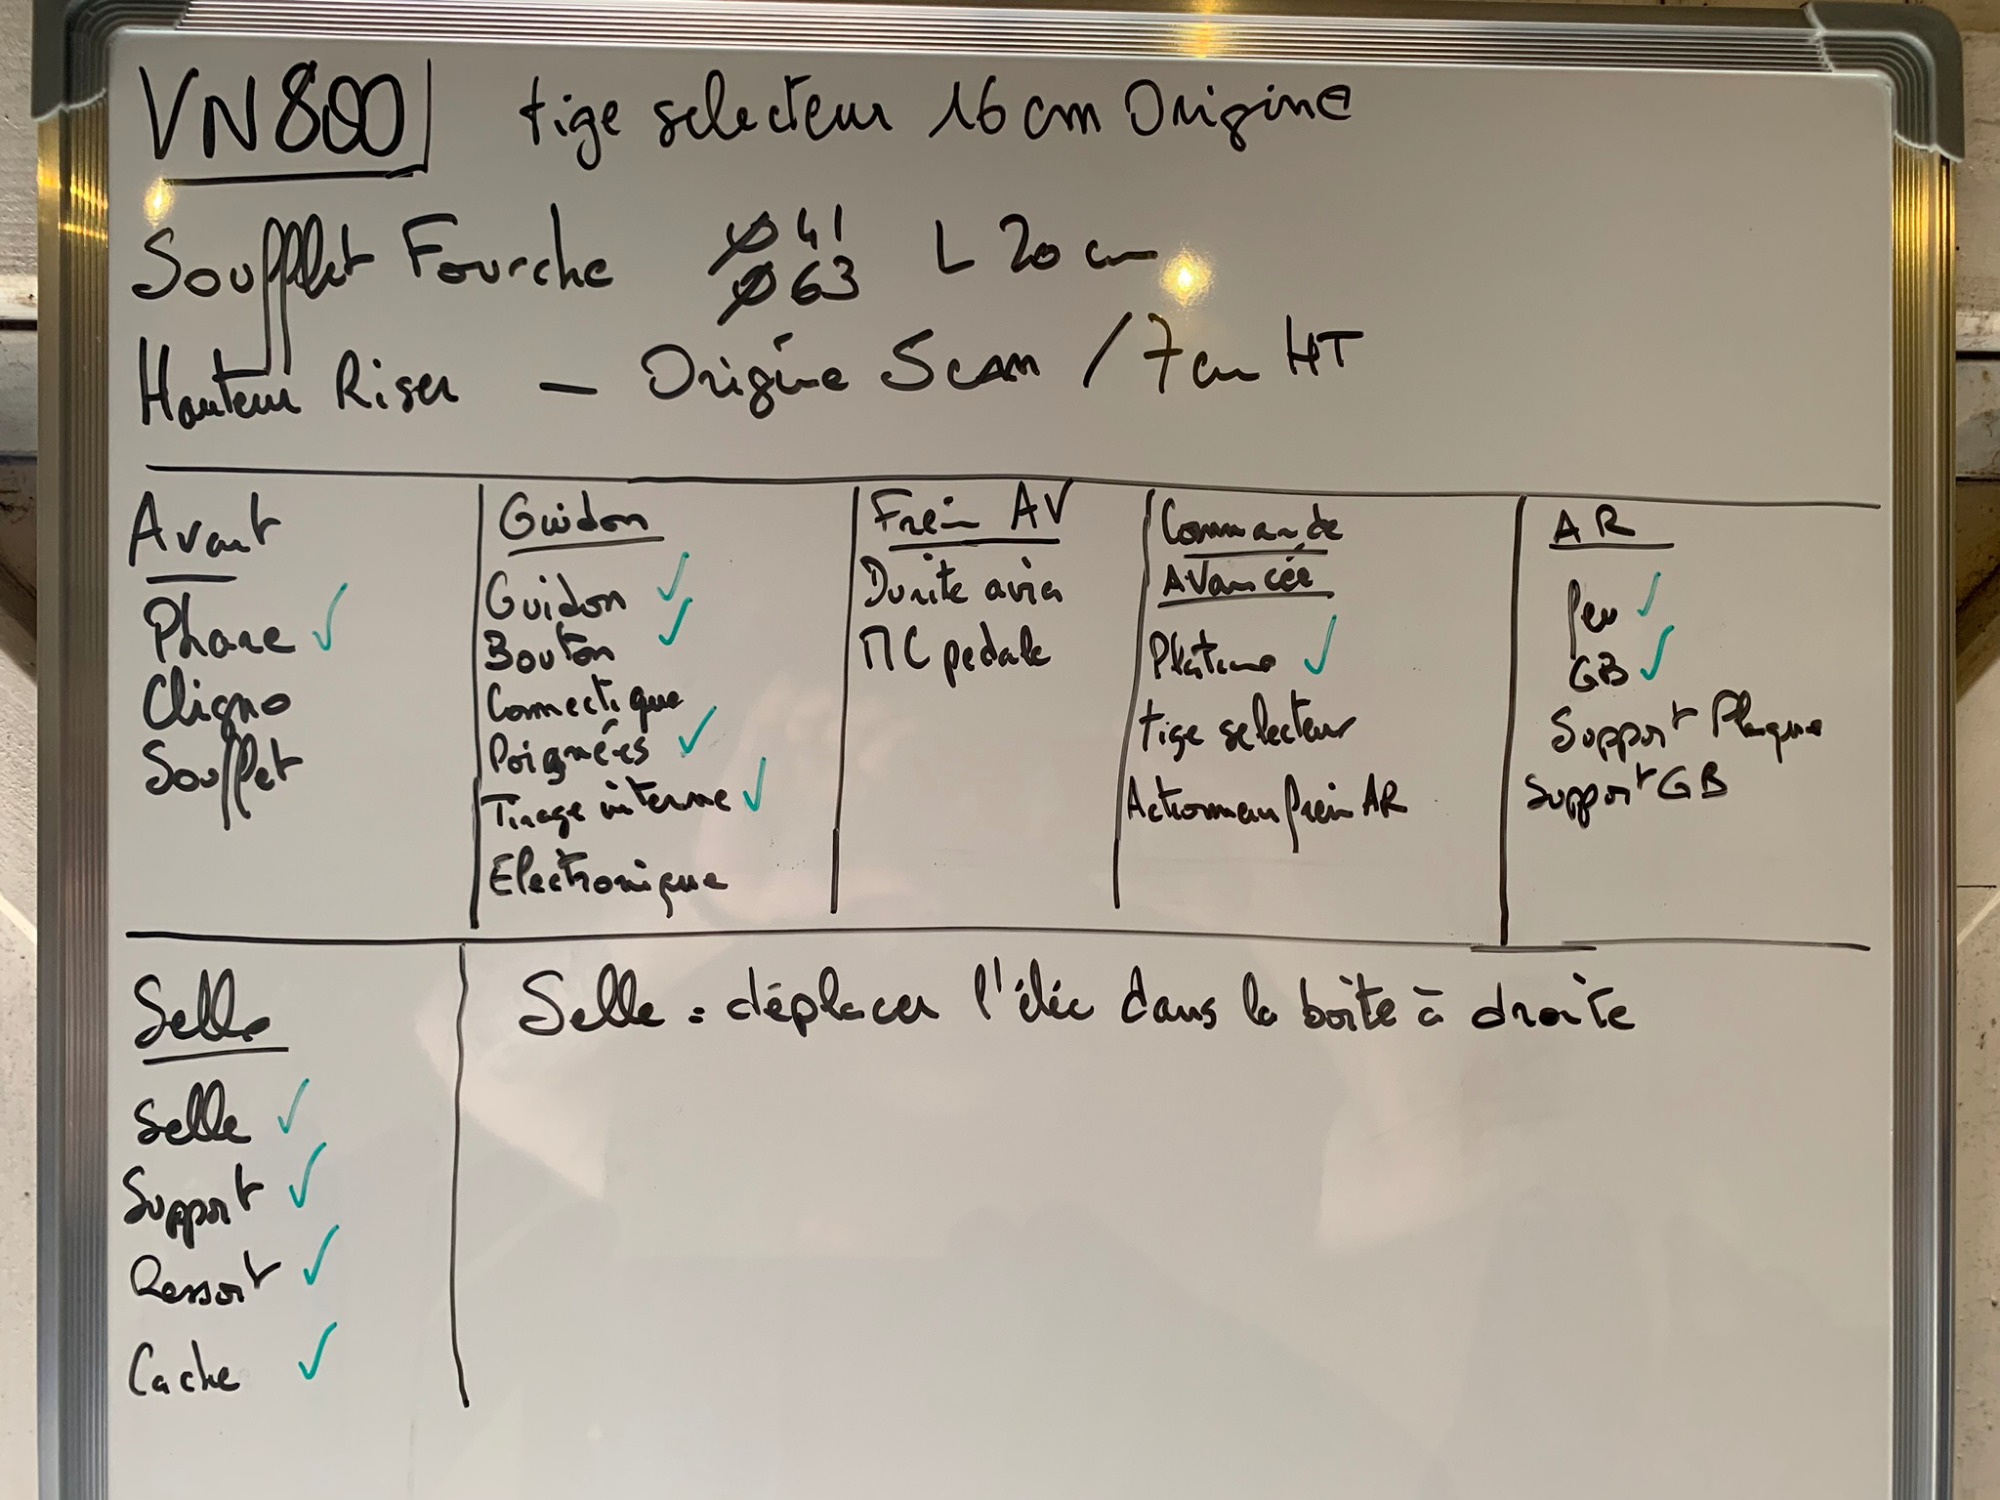 VN800 tige selecteur 16 cm Origine
Soufflet Fourche Ø 41 L 20 cm
Ø 63
Hauteur Riser — Origine 5cm / 7cm HT
Avant
Phare ✓
Cligno
Soufflet
Guidon
Guidon ✓
Bouton ✓
Connectique
Poignées ✓
Tirage interne ✓
Electronique
Frein AV
Durite avia
MC pedale
Commande
Avancée
Platine ✓
tige selecteur
Actionneur frein AR
AR
feu ✓
GB ✓
Support Plaque
Support GB
Selle
Selle ✓
Support ✓
Ressort ✓
Cache ✓
Selle : déplacer l'élec dans la boîte à droite